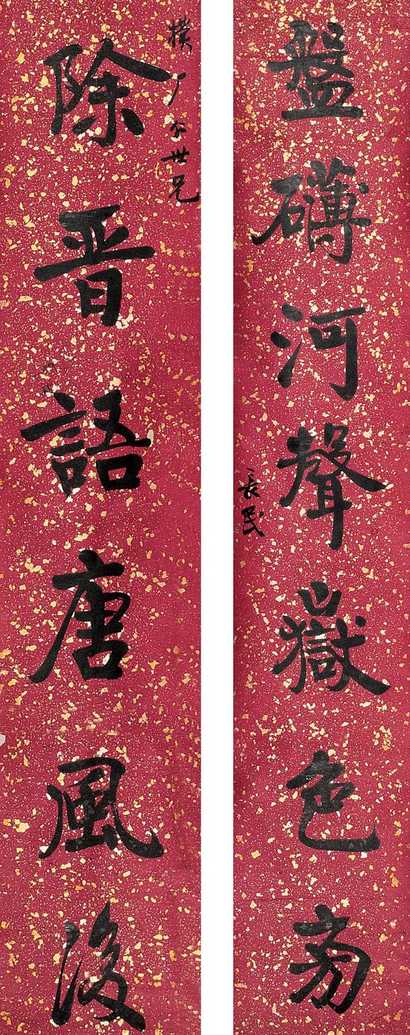 盤礴河聲嶽色旁
長民
樸厂公世兄
除晋語唐風後